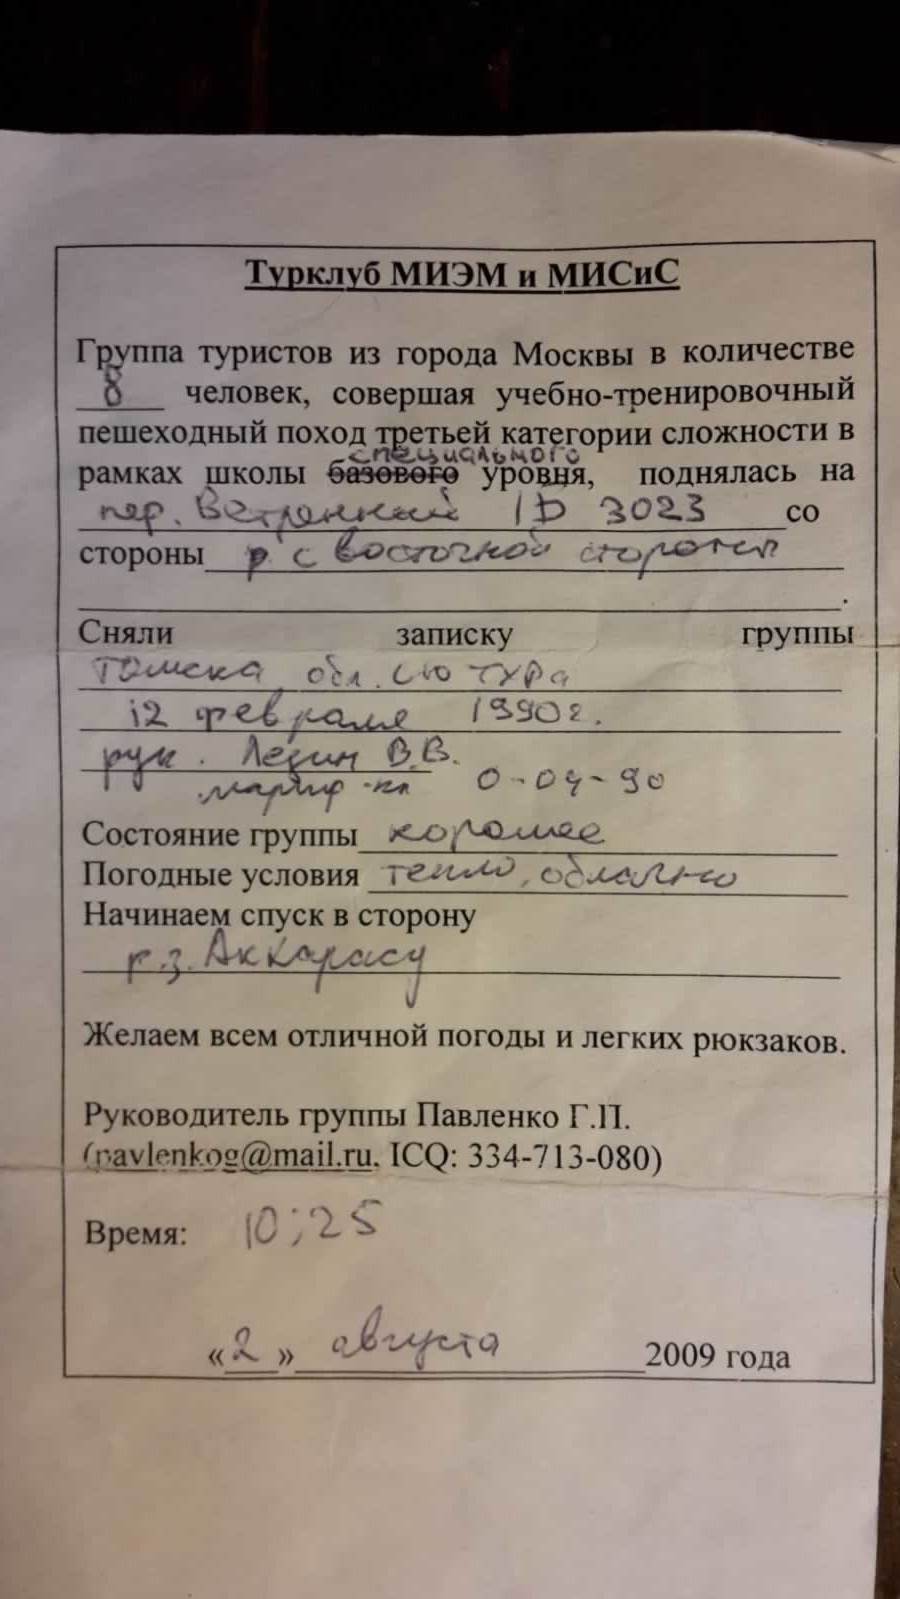 Турклуб МИЭМ и МИСиС
Группа туристов из города Москвы в количестве
8 человек, совершая учебно-тренировочный
пешеходный поход третьей категории сложности в
специального
рамках школы базового уровня, поднялась на
пер. Ветренный 1Б 3023 со
стороны р. с восточной стороны
.
Сняли записку группы
Томска обл. СЮТУРа
12 февраля 1990г.
рук. Лезин В.В.
марш 0-04-90
Состояние группы хорошее
Погодные условия тепло, облачно
Начинаем спуск в сторону
г.з. Аккарасу
Желаем всем отличной погоды и легких рюкзаков.
Руководитель группы Павленко Г.П.
(pavlenkog@mail.ru, ICQ: 334-713-080)
Время: 10:25
«2» августа 2009 года